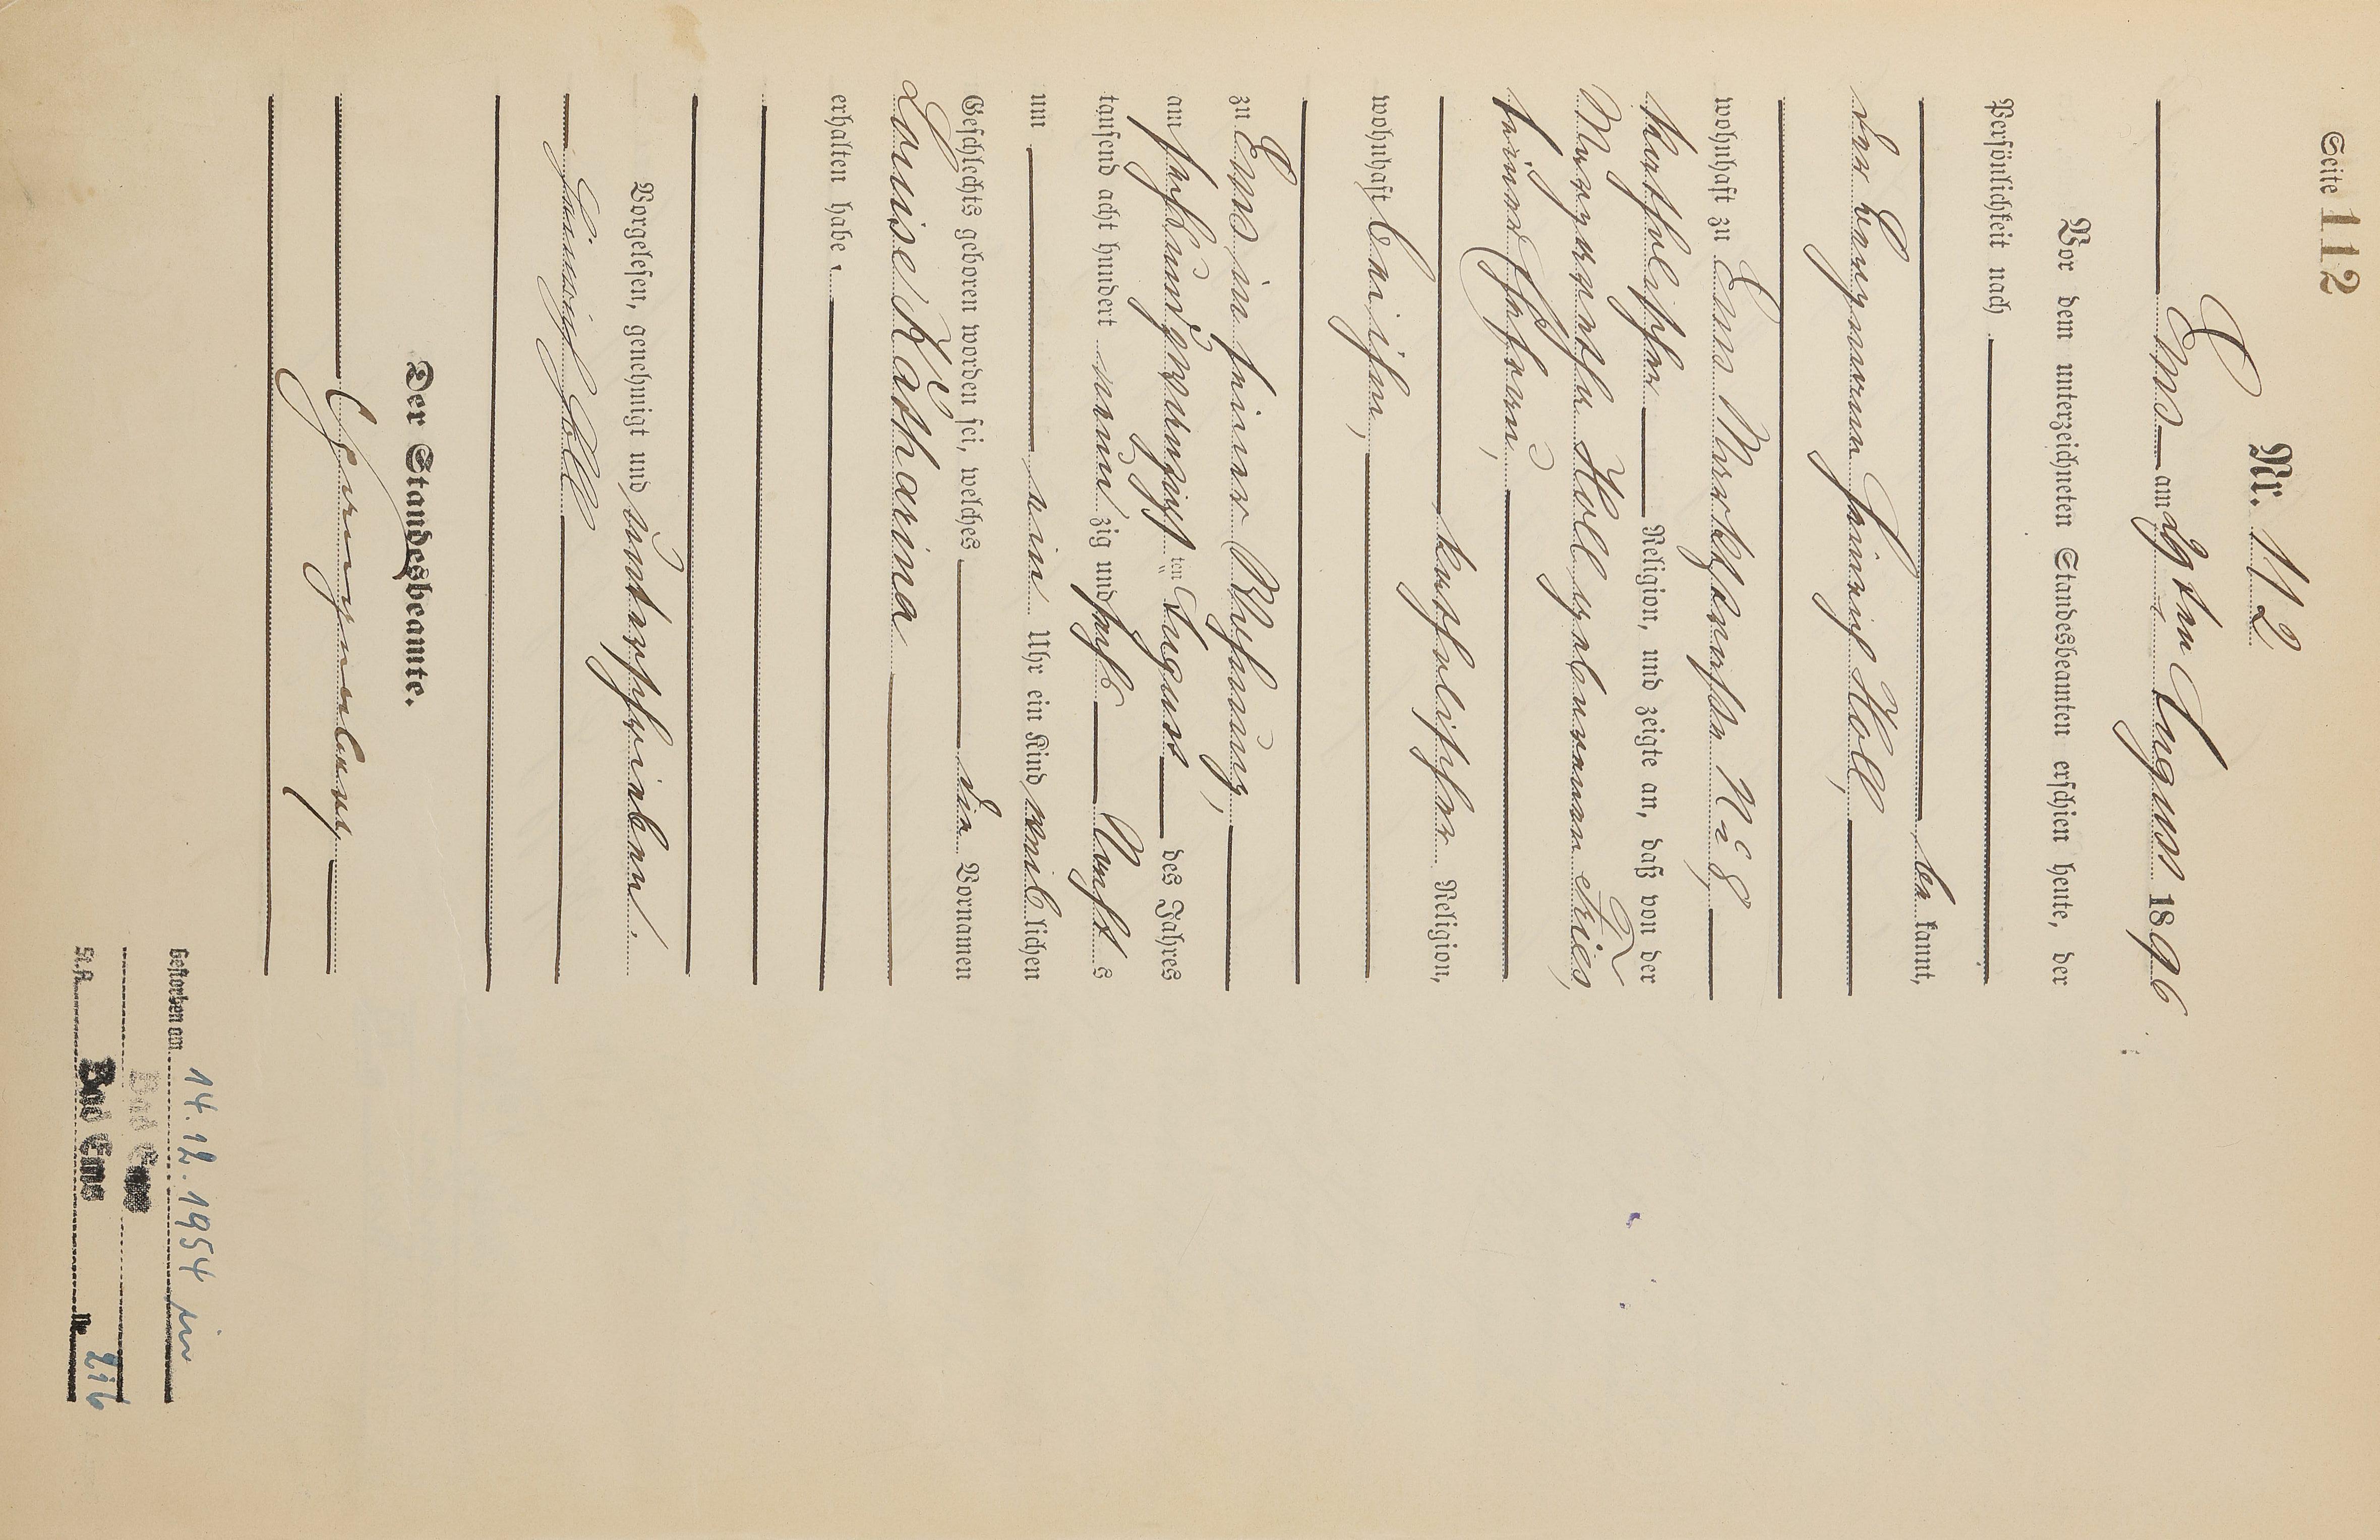 Seite 112
Nr. 112
Ems am 29ten August 1896
Vor dem unterzeichneten Standesbeamten erschien heute, der
Persönlichkeit nach
be kannt,
der Bergmann Heinrich Holl,
wohnhaft zu Ems Marktstraße No 8,
katholischer Religion, und zeigte an, daß von der
Margaretha Holl geborenen Kries,
seiner Ehefrau,
katholischer Religion,
wohnhaft bei ihm,
zu Ems in seiner Wohnung,
am sechsundzwanzigsten August des Jahres
tausend acht hundert neun zig und sechs Nachts
um ein Uhr ein Kind weiblichen
Geschlechts geboren worden sei, welches die Vornamen
Louise Katharina
erhalten habe.
Vorgelesen, genehmigt und unterschrieben.
Heinrich Holl
Der Standesbeamte.
Gestorben am 14.12.1954 in
Bad Ems
St.A. Bad Ems Nr. 216